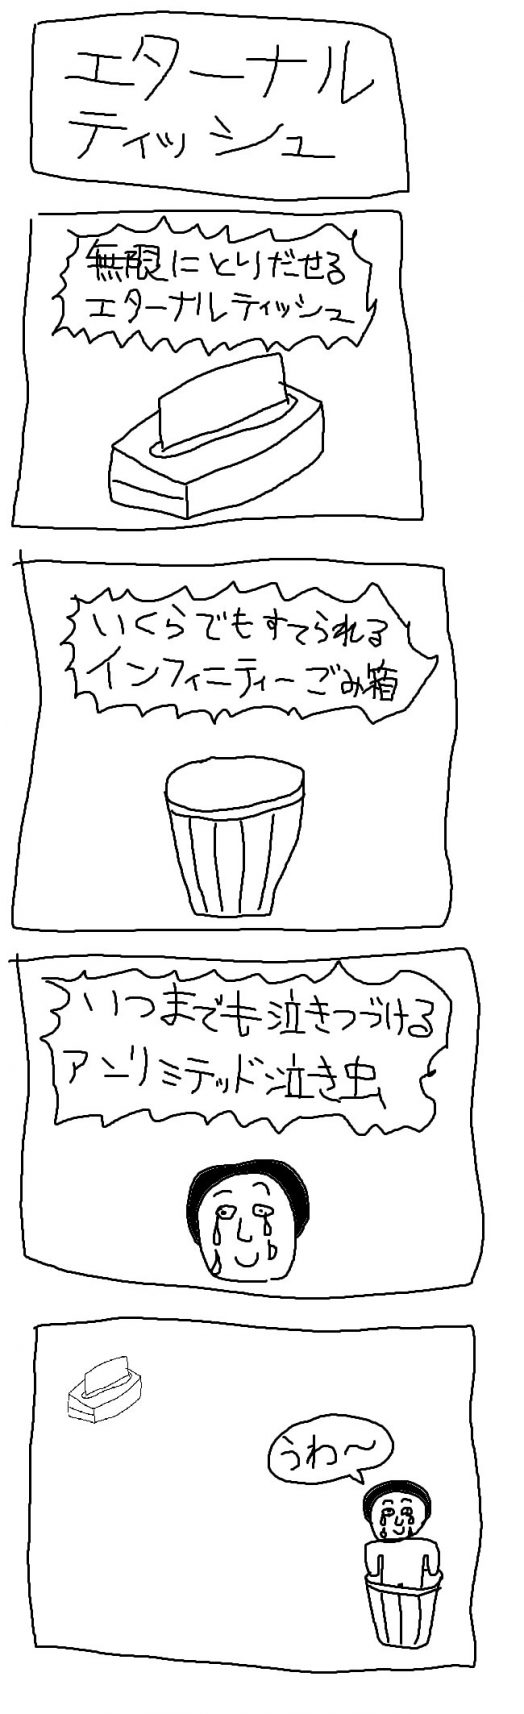 エターナル
ティッシュ
無限にとりだせる
エターナルティッシュ
いくらでもすてられる
インフィニティーごみ箱
いつまでも泣きつづける
アンリミテッド泣き虫
うわ〜